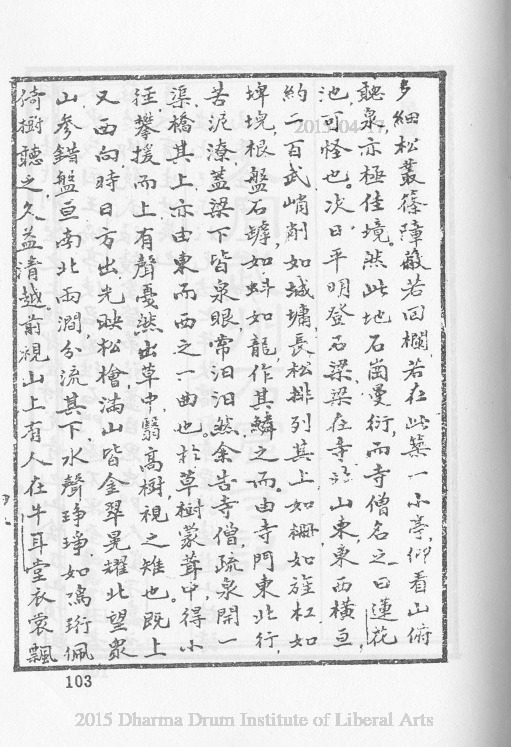 多細松叢篠障蔽若回欄若在此築一小亭仰看山俯
聽泉亦極佳境然此地石齒曼衍而寺僧名之曰蓮花
池可怪也次日平明登石梁梁在寺 山東東西橫亘
約二百武峭削如城墉長松排列其上如柵如旌杠如
埤堄根盤石罅如蚪如龍作其鱗之而由寺門東北行
苦泥潦蓋梁下皆泉眼常汩汩然余告寺僧疏泉開一
渠橋其上亦由東而西之一曲也於草樹蒙茸中得小
徑攀援而上有聲戛然出草中翳高樹視之雉也既上
又西向時日方出光映松檜滿山皆金翠晃耀北望衆
山參錯盤亘南北兩澗分流其下水聲琤琤如鳴珩佩
倚樹聽之久益清越前視山上有人在牛耳堂衣裳飄
103
2015 Dharma Drum Institute of Liberal Arts